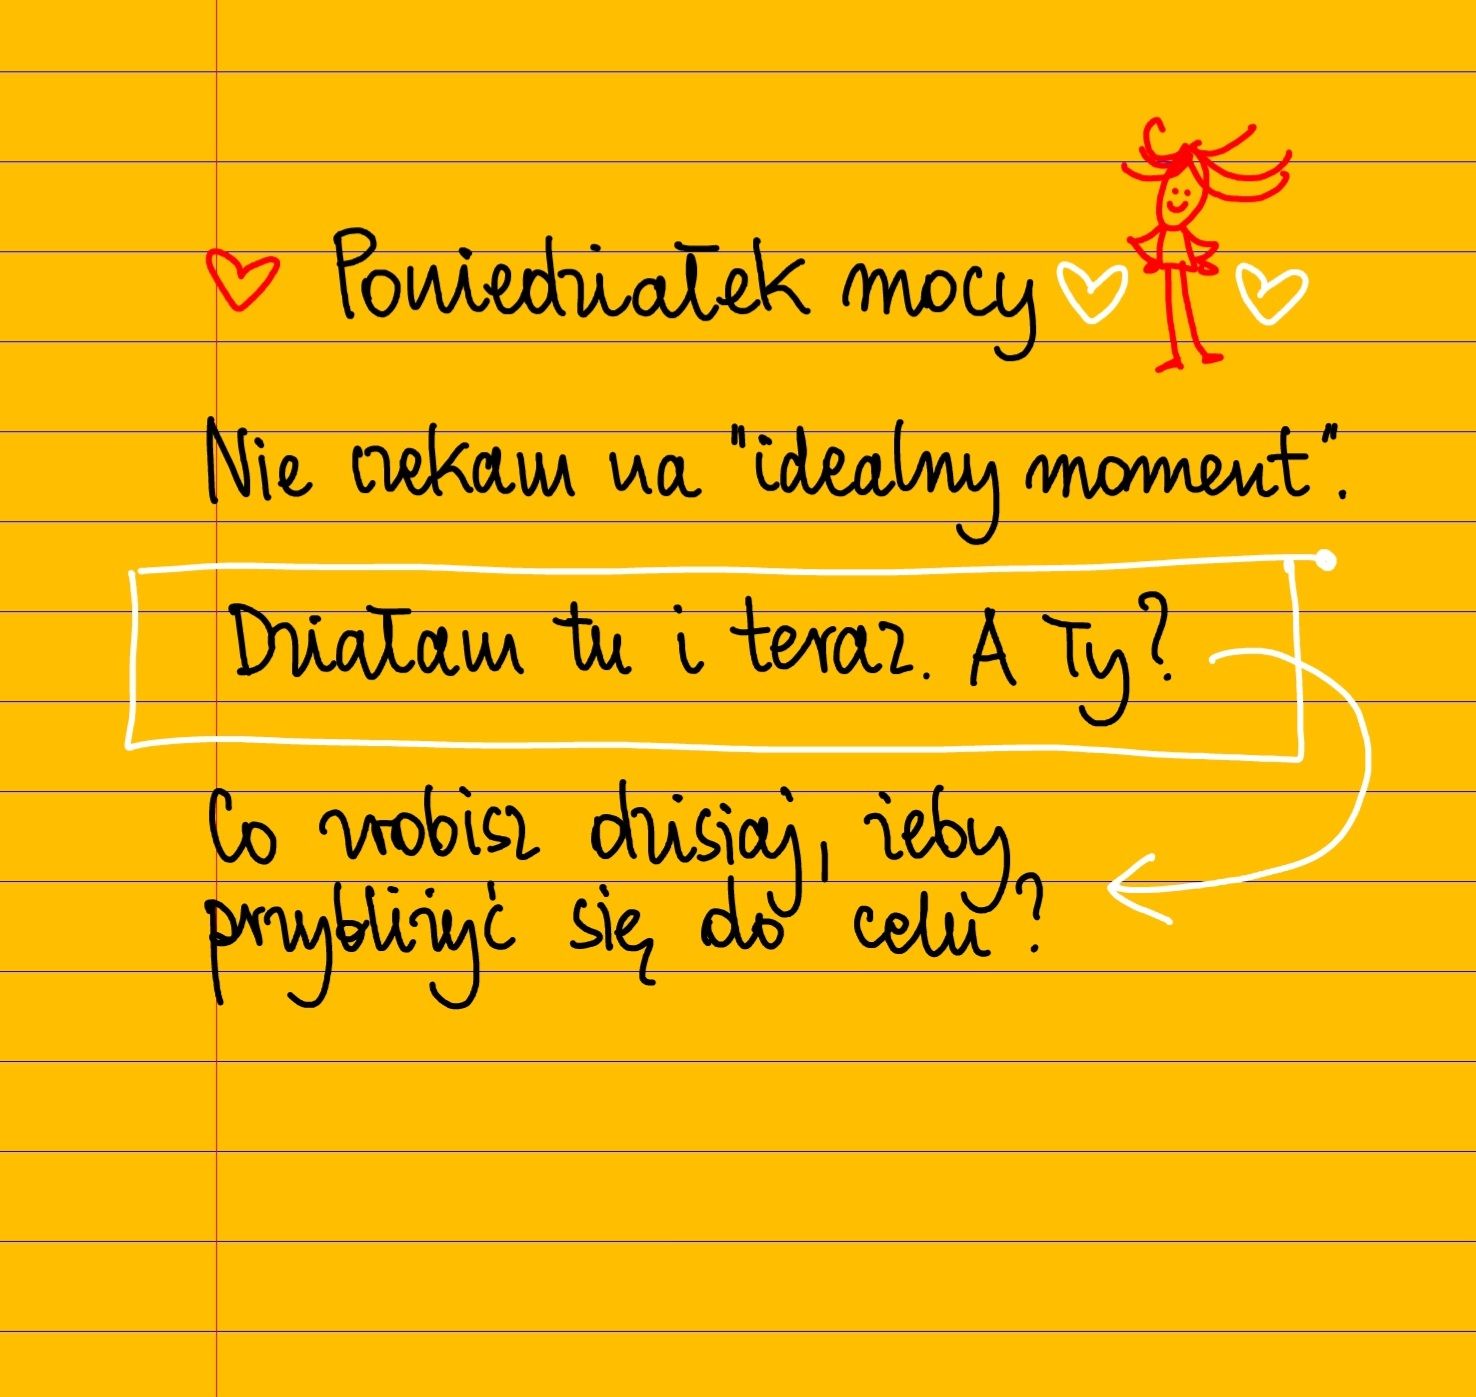 Poniedziałek mocy
Nie czekam na "idealny moment".
Działam tu i teraz. A Ty?
Co zrobisz dzisiaj, żeby
przybliżyć się do celu?